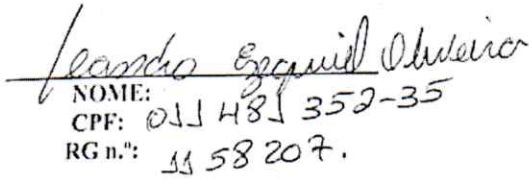 Leandro Ezequiel Oliveira
NOME:
CPF: 011 481 352-35
RG n.º: 11 58 207.